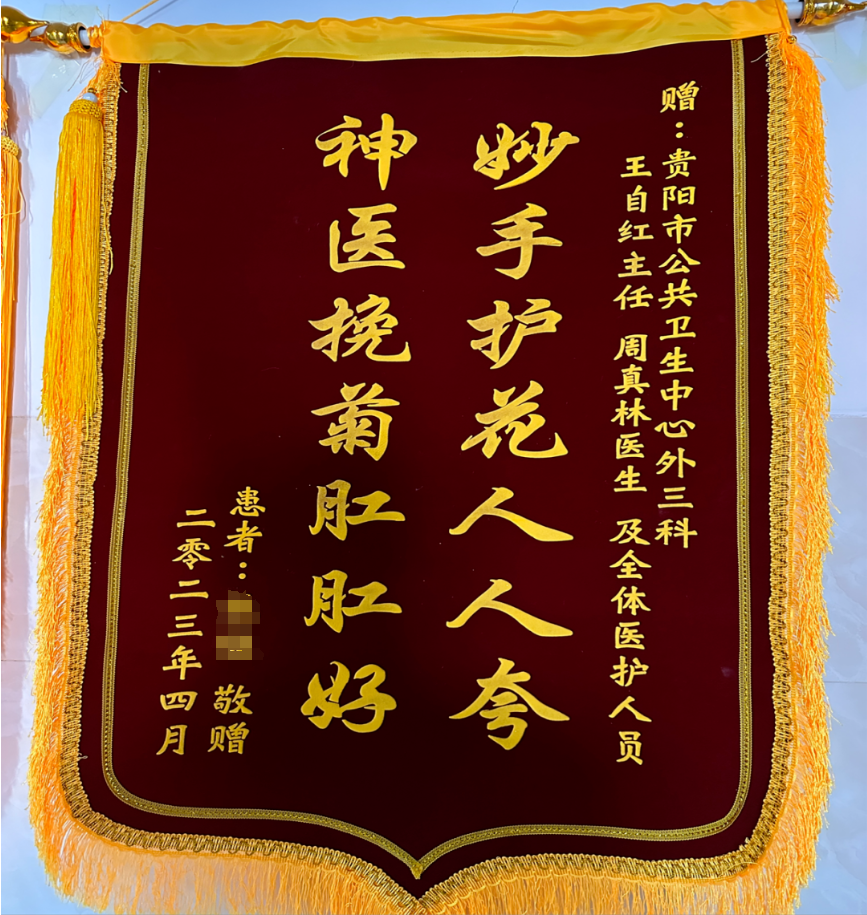 赠：贵阳市公共卫生中心外三科
王自红主任 周真林医生 及全体医护人员
妙手护花人人夸
神医挽菊肛肛好
患者： 敬赠
二零二三年四月